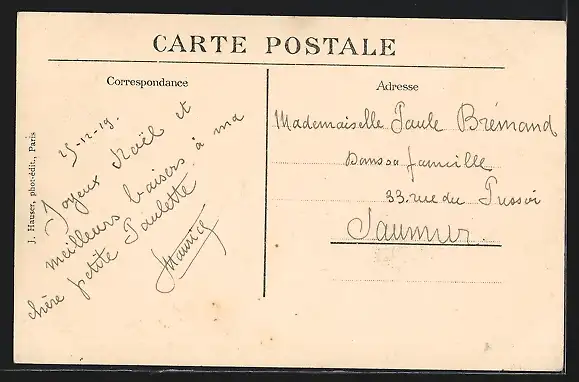 CARTE POSTALE
Correspondance
Adresse
J. Hauser, phot-édit., Paris
25-12-19.
Joyeux Noël et
meilleurs baisers à ma
chère petite Paulette
Maurice
Mademaiselle Paule Brémand
Dans sa famille
33. rue du
Saumur